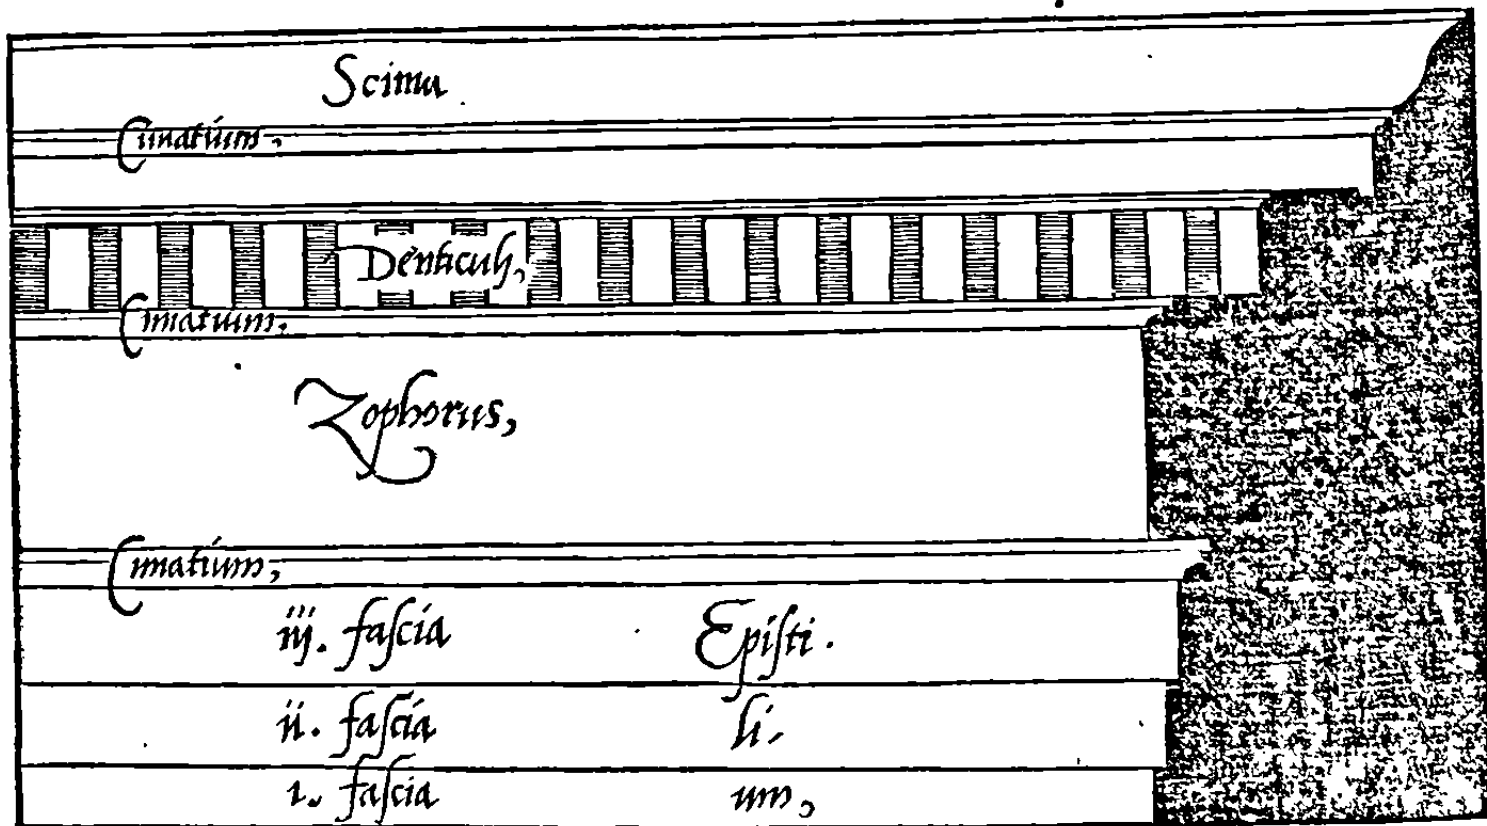 Scima
Cimatium,
Denticuli,
Cimatium,
Zophorus,
Cimatium,
iij. fascia Episti.
ij. fascia li.
i. fascia um,